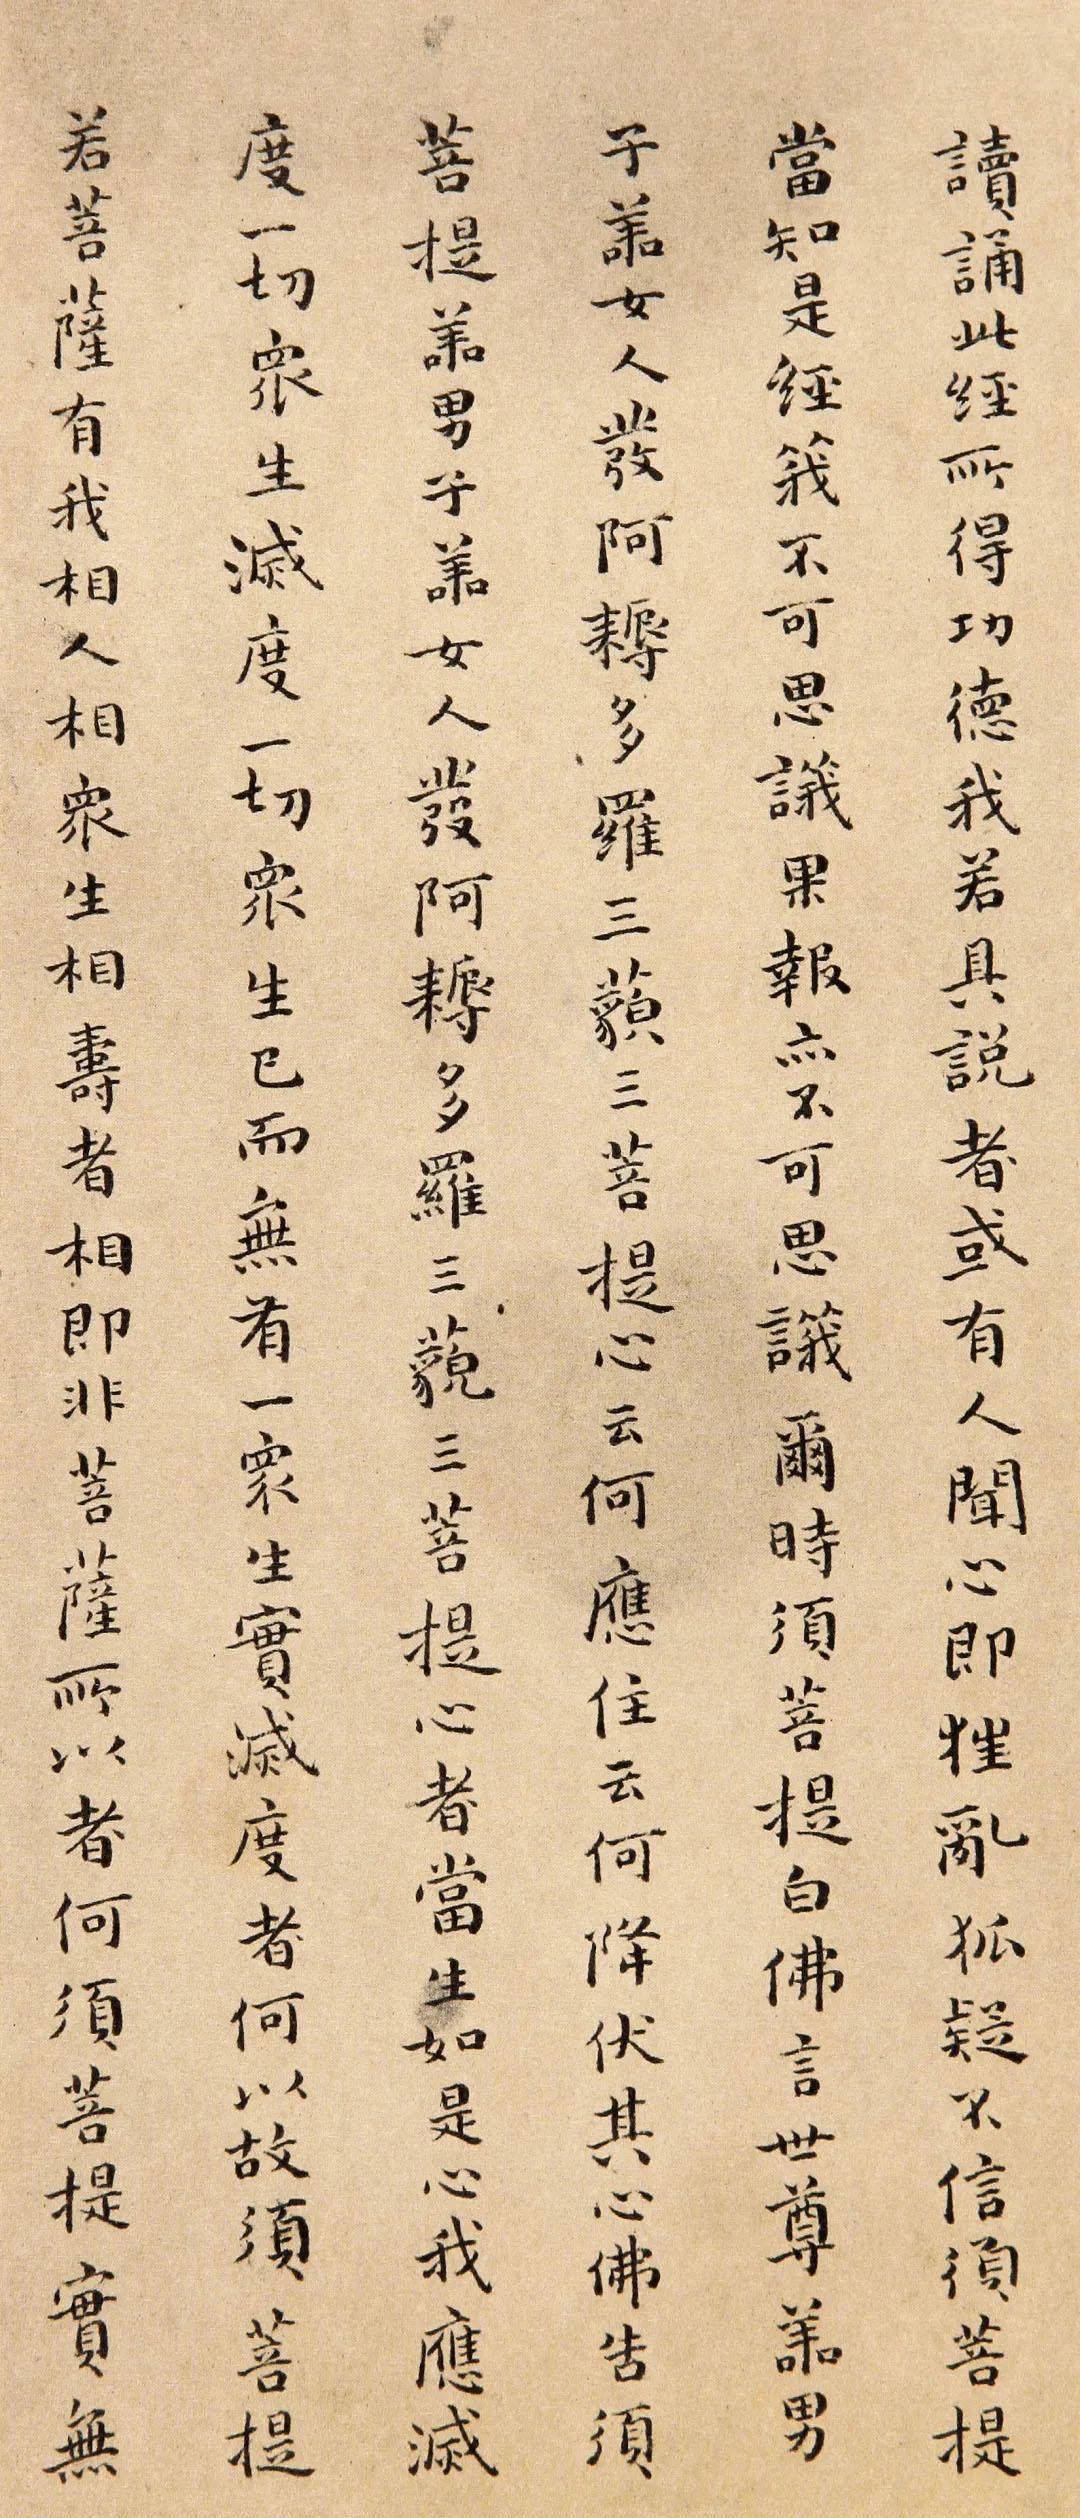 讀誦此經所得功德我若具説者或有人聞心即狂亂狐疑不信須菩提
當知是經義不可思議果報亦不可思議爾時須菩提白佛言世尊善男
子善女人發阿耨多羅三藐三菩提心云何應住云何降伏其心佛告須
菩提善男子善女人發阿耨多羅三藐三菩提心者當生如是心我應滅
度一切衆生滅度一切衆生已而無有一衆生實滅度者何以故須菩提
若菩薩有我相人相衆生相壽者相即非菩薩所以者何須菩提實無